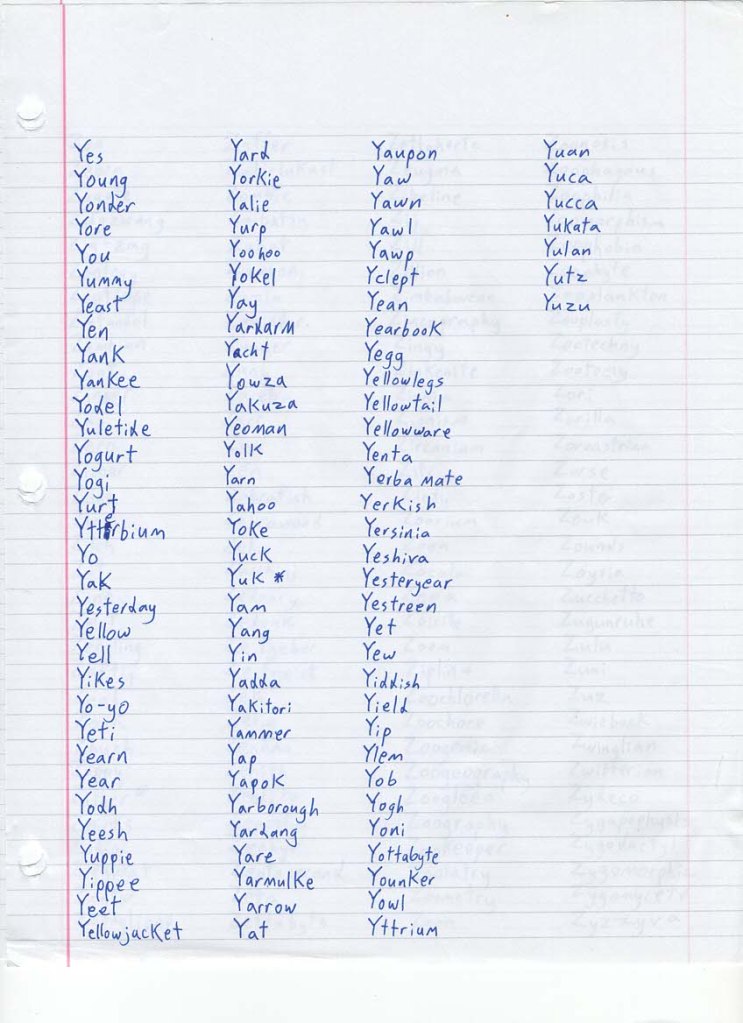 Yes
Young
Yonder
Yore
You
Yummy
Yeast
Yen
Yank
Yankee
Yodel
Yuletide
Yogurt
Yogi
Yurt
Ytterbium
Yo
Yak
Yesterday
Yellow
Yell
Yikes
Yo-yo
Yeti
Yearn
Year
Yodh
Yeesh
Yuppie
Yippee
Yeet
Yellowjacket
Yard
Yorkie
Yalie
Yurp
Yoohoo
Yokel
Yay
Yardarm
Yacht
Yowza
Yakuza
Yeoman
Yolk
Yarn
Yahoo
Yoke
Yuck
Yuk *
Yam
Yang
Yin
Yadda
Yakitori
Yammer
Yap
Yapok
Yarborough
Yardang
Yare
Yarmulke
Yarrow
Yat
Yaupon
Yaw
Yawn
Yawl
Yawp
Yclept
Yean
Yearbook
Yegg
Yellowlegs
Yellowtail
Yellowware
Yenta
Yerba mate
Yerkish
Yersinia
Yeshiva
Yesteryear
Yestreen
Yet
Yew
Yiddish
Yield
Yip
Ylem
Yob
Yogh
Yoni
Yottabyte
Younker
Yowl
Yttrium
Yuan
Yuca
Yucca
Yukata
Yulan
Yutz
Yuzu